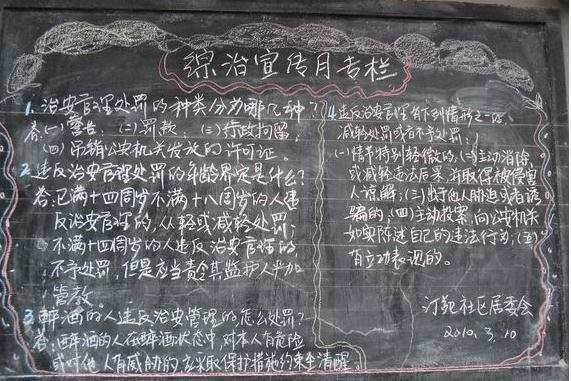 综治宣传月专栏
1.治安管理处罚的种类分为哪几种?
答:(一)警告、(二)罚款、(三)行政拘留、
(四)吊销公安机关发放的许可证。
2.违反治安管理处罚的年龄界定是什么?
答:已满十四周岁不满十八周岁的人违
反治安管理的,从轻或减轻处罚;
不满十四周岁的人违反治安管理的,
不予处罚,但是应当责令其监护人严加
管教。
3.醉酒的人违反治安管理的怎么处罚?
答:醉酒的人在醉酒状态中,对本人有危险
或对他人有威胁的,应采取保护措施约束至清醒。
4.违反治安管理有下列情形之一的,
减轻处罚或者不予处罚:
(一)情节特别轻微的,(二)主动消除
或减轻违法后果,并取得被侵害
人谅解;(三)出于他人胁迫或者诱
骗的,(四)主动投案,向公安机关
如实陈述自己的违法行为;(五)
有立功表现的。
社区居委会
2010.3.10